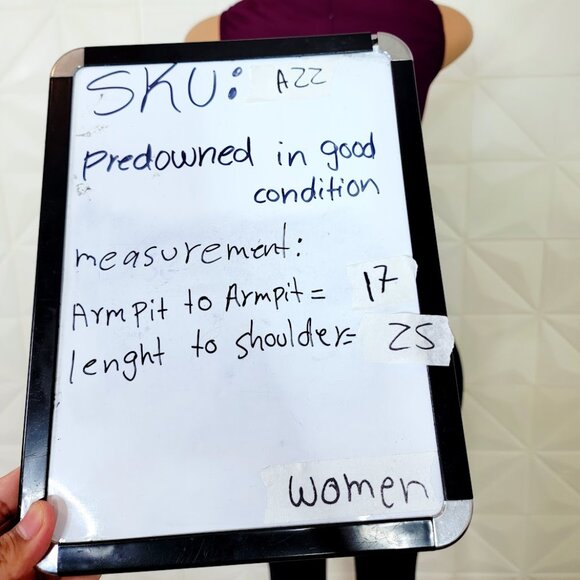 SKU: A22
predowned in good
condition
measurement:
Armpit to Armpit = 17
lenght to shoulder= 25
women